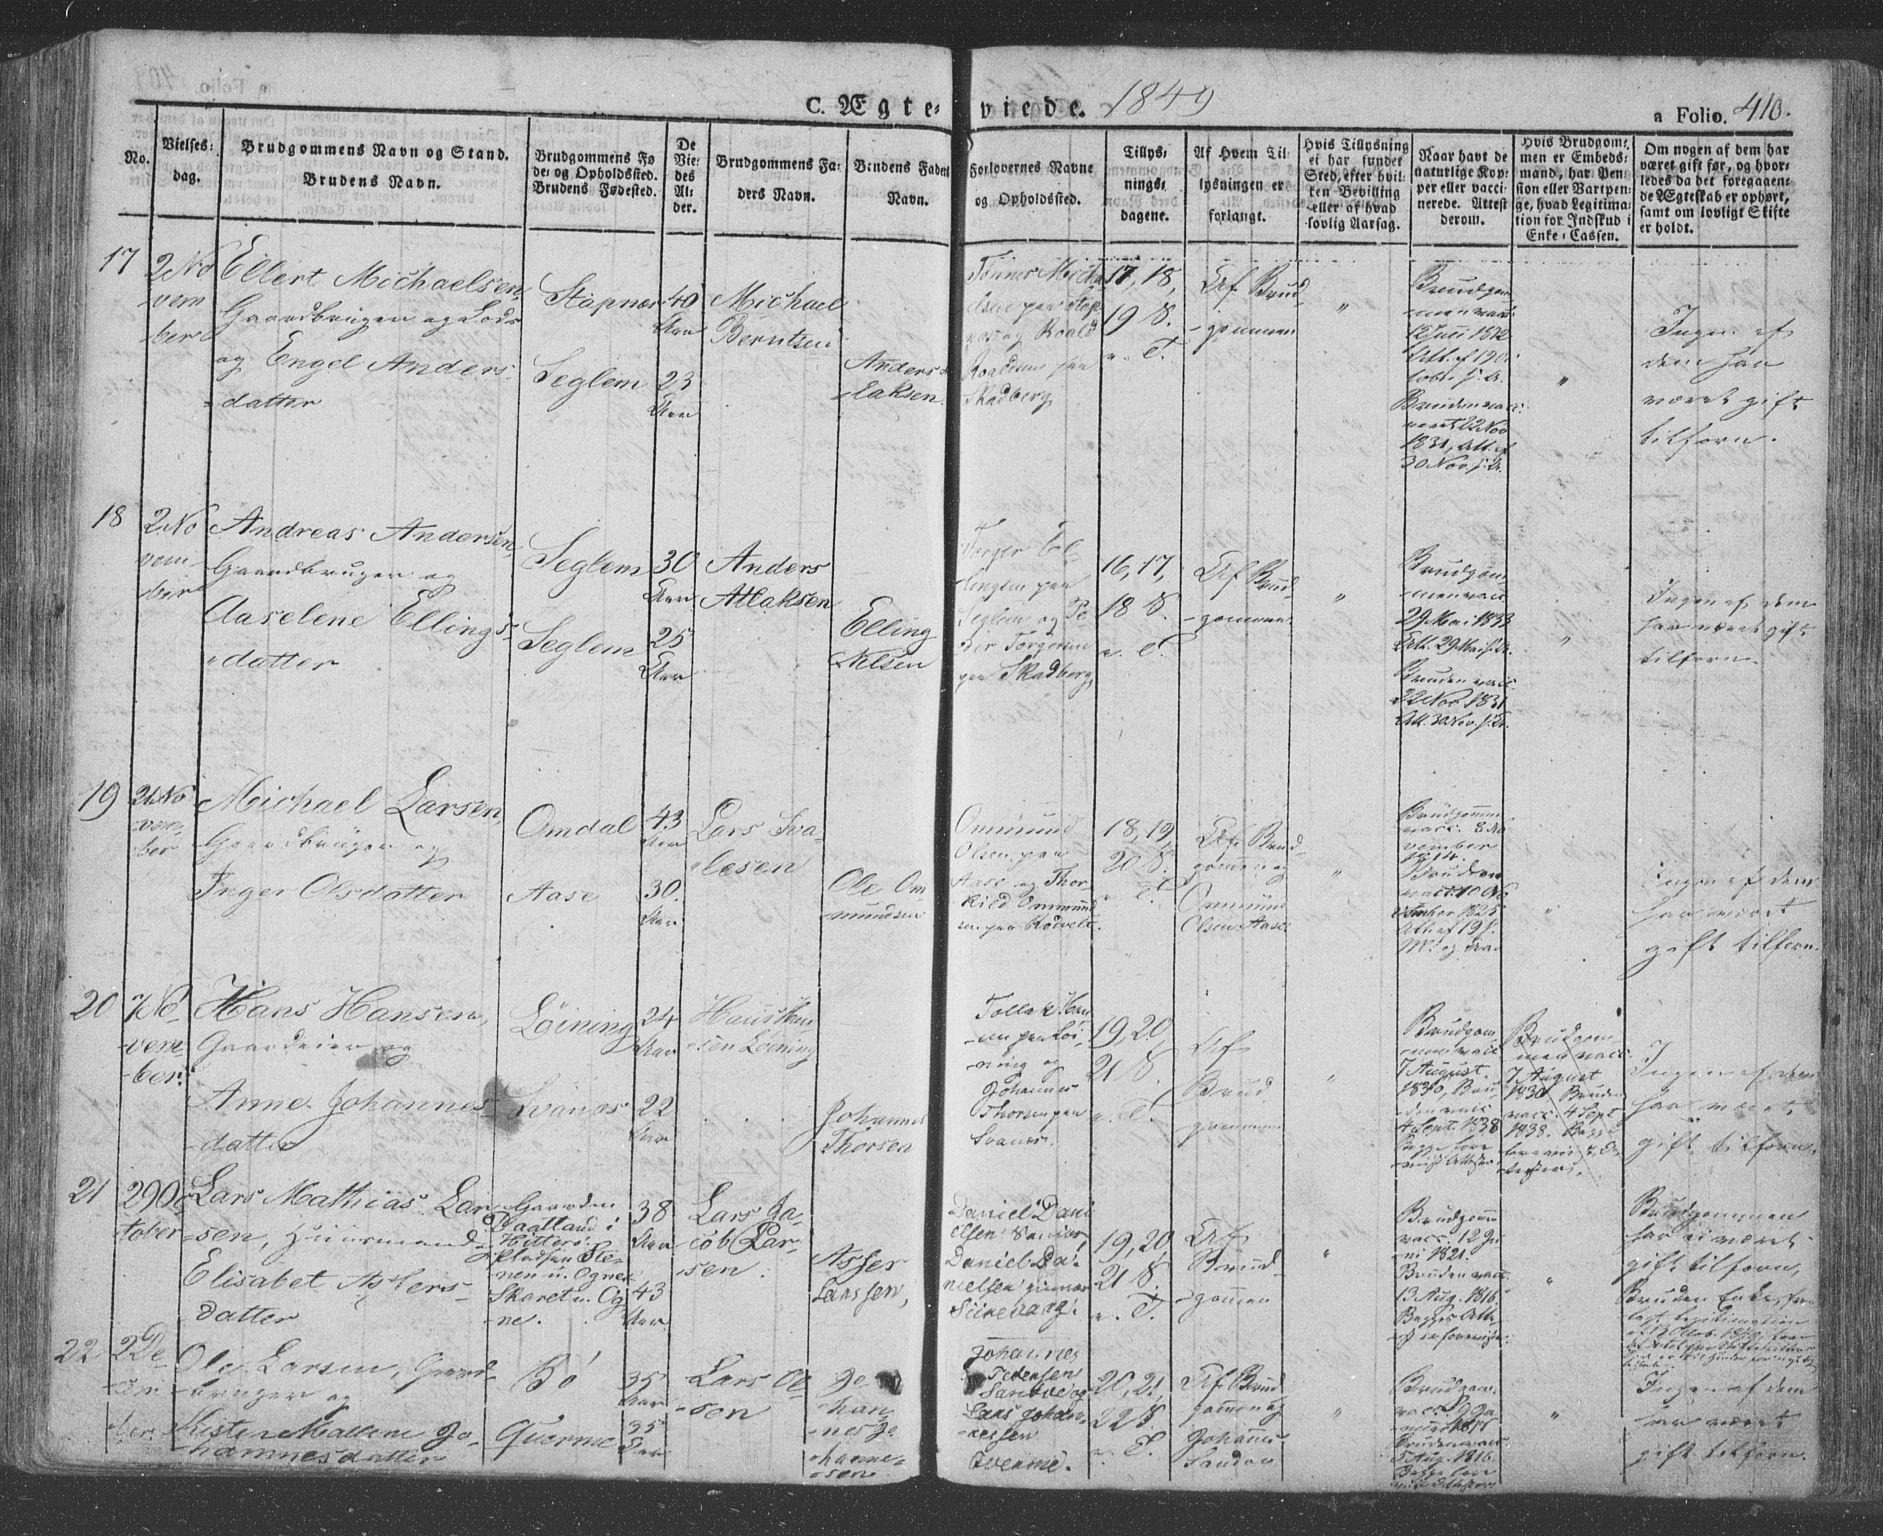 C. Ægte- viede. 1849
a Folio. 410.
No.
Vielses-
dag.
Brudgommens Navn og Stand.
Brudens Navn.
Brudgommens Fø
de- og Opholdssted.
Brudens Fødested.
De
Vie-
des
Al-
der.
Brudgommens Fa-
ders Navn.
Brudens Faders
Navn.
Forlovernes Navne
og Opholdssted.
Tillys-
nings-
dagene.
Af Hvem Til-
lysningen er
forlangt.
Hvis Tillysning
ei har fundet
Sted, efter hvil-
ken Bevilling
eller af hvad
lovlig Aarsag.
Naar havt de
naturlige Kop-
per eller vacci-
nerede. Attest
derom.
Hvis Brudgom-
men er Embeds-
mand, har Pen-
sion eller Vartpen-
ge, hvad Legitima-
tion for Indskud i
Enke-Cassen.
Om nogen af dem har
været gift før, og hvor-
ledes da det foregaaen-
de Ægteskab er ophørt,
samt om lovligt Skifte
er holdt.
17
2 No
vem
ber
Ellert Michaelsen
Gaardbruger og Lods
og Engel Anders-
datter
Stapnæs
Seglem
40
Aar
23
Aar
Michael
Berntsen
Anders
Tønnes Mich
Roald
Roaldsen paa
Skadberg
17, 18,
19 S.
e. T.
Af Brud-
gommen
"
Brudgom-
men vacc.
12 Juni
Bruden vacc.
22 Nov
1831, Att. af
30 Nov. s. A.
"
Ingen af
dem har
været gift
tilforn.
18
2 No
vem-
ber
Andreas Andersen,
Gaardbruger og
Aaselene Ellings-
datter
Seglem
Seglem
30
Aar
25
Aar
Anders
Atlaksen
Elling
Nilsen
Tørger El-
lingsen paa
Seglem og Pe-
der Tørgersen
paa Skadberg
16, 17,
18 S.
e. T.
Af Brud-
gommen
"
Brudgom-
men vacc.
29 Mai 1833
Att. 29 Mai s. A.
Bruden vacc.
22 Nov. 1831
Att. 30 Nov. s. A.
"
Ingen af dem
har været gift
tilforn.
19
21 No
vem-
ber
Michael Larsen,
Gaardbruger og
Inger Olsdatter
Omdal
Aase
43
Aar
30.
Aar
Lars Sva-
lesen
Ole Om-
mundsen
Ommund
Olsen paa
Aase og Thor-
kild Ommund-
sen paa Rødvelt.
18, 19,
20 S.
e. T.
Af Brud-
gommen og
Ommund
Olsen Aase
"
Brudgomm
vacc. 8 No
vember
Bruden
vacc. 10 No
vember 1825
"
Ingen af dem
har været
gift tilforn.
20
7 No-
vem-
ber.
Hans Hansen,
Gaardeier og
Anne Johannes-
datter
Løining
Svanæs
24
Aar
22
Aar
Hans Han
sen Løining
Johannes
Thorsen
Tollak Han
sen paa Lø-
ning og
Johannes
Thorsen paa
Svanæs.
19, 20,
21 S.
e. T.
Af
Brud-
gommen
"
Brudgom-
men vacc.
7 August
1830, Bru-
den vacc.
4 Sept. 1838
Brudgom-
men vacc.
7 August
1830 Bruden
vacc. 4 Sept
1838. Begge
Ingen af dem
har været
gift tilforn.
21
29 Oc-
tober
Lars Mathias Lar-
sen, Huusmand
Elisabet Assers-
datter
Gaarden
i
Hitterø
Pladsen Ste-
nen u. Ogne
Skaret u. Og-
ne.
38
Aar
43
Aar
Lars Ja-
cob Lar-
sen.
Asser
Larssen,
Daniel Dani
elsen Senior,
Daniel Da-
nielsen junior
Siirenæs
19, 20,
21 S.
e. T.
Af
Brud-
gommen
"
Brudgomm
vacc. 12 Ju-
ni 1821.
Bruden vacc.
13 Aug. 1816
Begges Atte-
"
Brudgommen
har ei været
gift tilforn,
Bruden Enke,
22
2 De-
cem-
ber.
Ole Larsen, Gaard-
bruger og
Kisten Mallene Jo-
hannesdatter
Bö
Querme
35
Aar
35
Aar
Lars Ol-
sen
Jo
han-
nes Jo
hanne-
sen
Johannes
Pedersen
Sandve og
Lars Johan-
nessen
Qverme.
20, 21,
22 S.
e. T.
Af Brud-
gommen og
Johannes
"
Brudgom.
Bruden vacc.
5 Aug. 1816.
Begge
"
Ingen af dem
har været
gift tilforn.